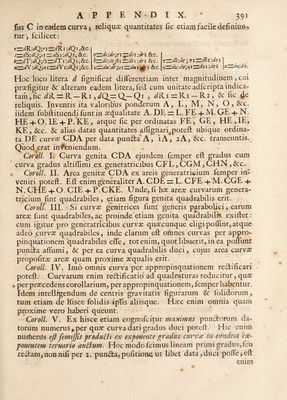 APPENDIX. 391
sus C in eadem curva, reliquæ quantitates sic etiam facile definiun-
tur, scilicet:
Hoc loco litera d significat differentiam inter magnitudinem, cui
præfigitur & alteram eadem litera, sed cum unitate adscripta indica-
tam, sic dR = R — R1, dQ = Q — Q1, dR1 = R1 — R2, & sic de
reliquis. Inventis ita valoribus ponderum A, L, M, N, O, &c.
iidem substituendi sunt in æqualitate A. DE = L. FE + M. GE + N.
HE + O. IE + P. KE, atque sic per ordinatas FE, GE, HE, IE,
KE, &c. & alias datas quantitates assignari potest ubique ordina-
ta DE curvæ CDA per data puncta A, 1A, 2A, &c. transeuntis.
Quod erat inveniendum.
Coroll. I. Curva genita CDA ejusdem semper est gradus cum
curva gradus altissimi ex generatricibus CFL, CGM, CHN, &c.
Coroll. II. Area genitæ CDA ex areis generatricium semper in-
veniri potest. Est enim generaliter A. CDE = L. CFE + M. CGE +
N. CHE + O. CIE + P. CKE. Unde, si hæ areæ curvarum genera-
tricium sint quadrabiles, etiam figura genita quadrabilis erit.
Coroll. III. Si curvæ genitrices sunt generis parabolici, earum
areæ sunt quadrabiles, ac proinde etiam genita quadrabilis existet:
cum igitur pro generatricibus curvæ quæcunque eligi possint, atque
adeò curvæ quadrabiles, inde clarum est omnes curvas per appro-
pinquationem quadrabiles esse, tot enim, quot libuerit, in ea possunt
puncta assumi, & per ea curva quadrabilis duci, cujus area curvæ
propositæ areæ quam proximè æqualis erit.
Coroll. IV. Imò omnis curva per appropinquationem rectificari
potest. Curvarum enim rectificatio ad quadraturas reducitur, quæ
per præcedens corollarium, per appropinquationem, semper habentur.
Idem intelligendum de centris gravitatis figurarum & solidorum,
tum etiam de hisce solidis ipsis aliisque. Hæc enim omnia quam
proximè vero haberi queunt.
Coroll. V. Ex hisce etiam cognoscitur maximus punctorum da-
torum numerus, per quæ curva dati gradus duci potest. Hic enim
numerus est semissis producti ex exponente gradus curvæ in eundem ex-
ponentem ternario auctum. Hoc modo scimus lineam primi gradus, seu
rectam, non nisi per 2. puncta, positione ut libet data, duci posse, est
enim